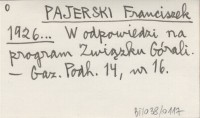 0
PAJERSKI Franciszek
1926... W odpowiedzi na
program Związku Górali.
– Gaz. Podh. 14, nr 16.
BI/038/0117